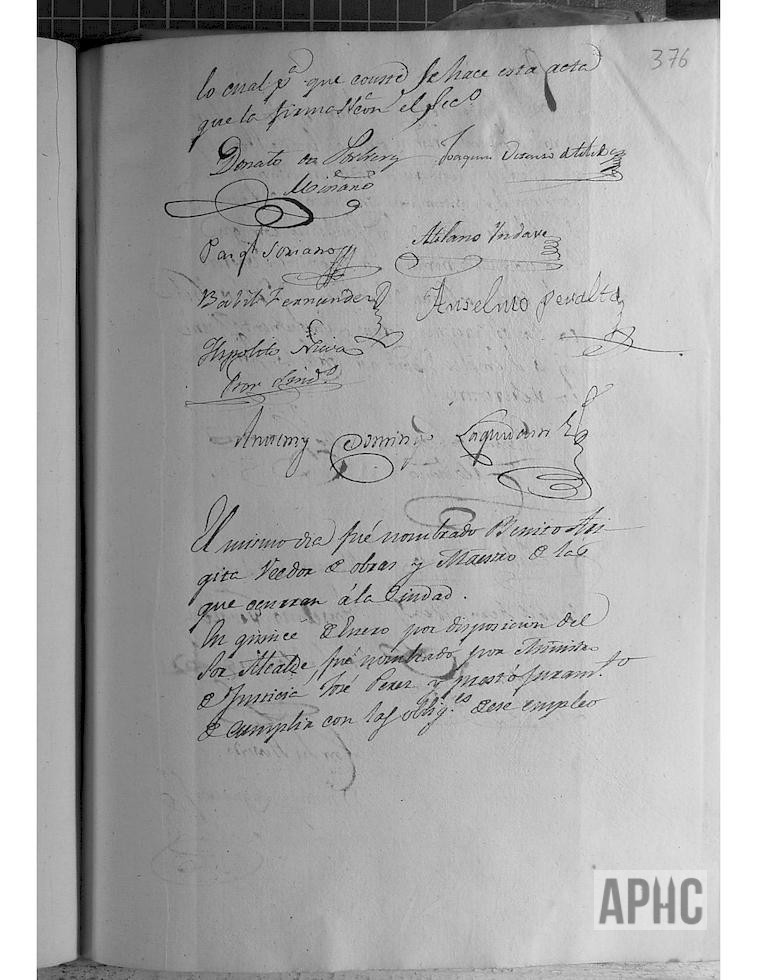 376
lo cual pª que conste se hace esta acta
que la firmaron con el Secº
Donato
Miñano
Joaquin
Pasql Soriano
Atilano Yndave
Babil Fernandez
Anselmo Peralta
Hipolito
Por Sindº
Antemy Domingo
El mismo dia fué nombrado Benito
Veedor de obras y Maestro de las
que ocurran á la Ciudad.
En quince de Enero por disposicion del
Sor Alcalde, fué nombrado por Ministro
de Justicia José Perez y prestó juramto
de cumplir con las obligs de ese empleo
APHC